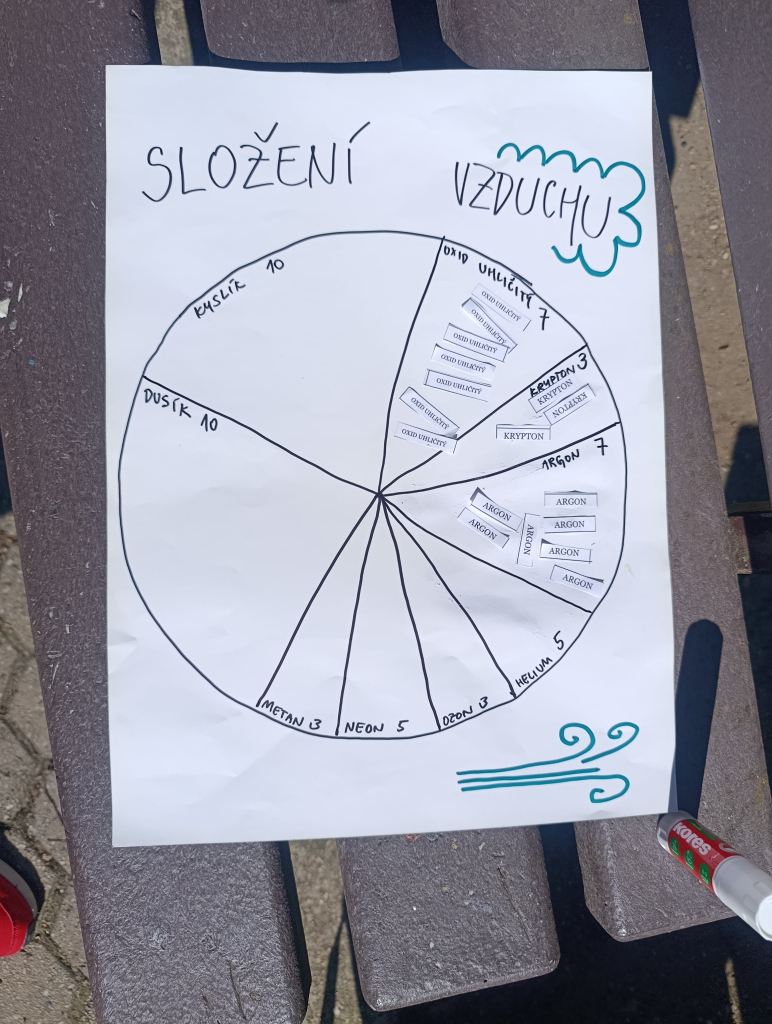 SLOŽENÍ
VZDUCHU
KYSLÍK 10
OXID UHLIČITÝ 7
OXID UHLIČITÝ
OXID UHLIČITÝ
OXID UHLIČITÝ
OXID UHLIČITÝ
OXID UHLIČITÝ
OXID UHLIČITÝ
OXID UHLIČITÝ
KRYPTON 3
KRYPTON
KRYPTON
KRYPTON
DUSÍK 10
ARGON 7
ARGON
ARGON
ARGON
ARGON
ARGON
ARGON
ARGON
HELIUM 5
METAN 3
NEON 5
OZON 3
kores